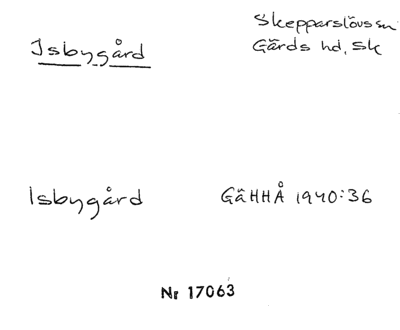 Skepparslövs sn
Isbygård
Gärds hd, Sk
Isbygård GäHHÅ 1940:36
Nr 17063